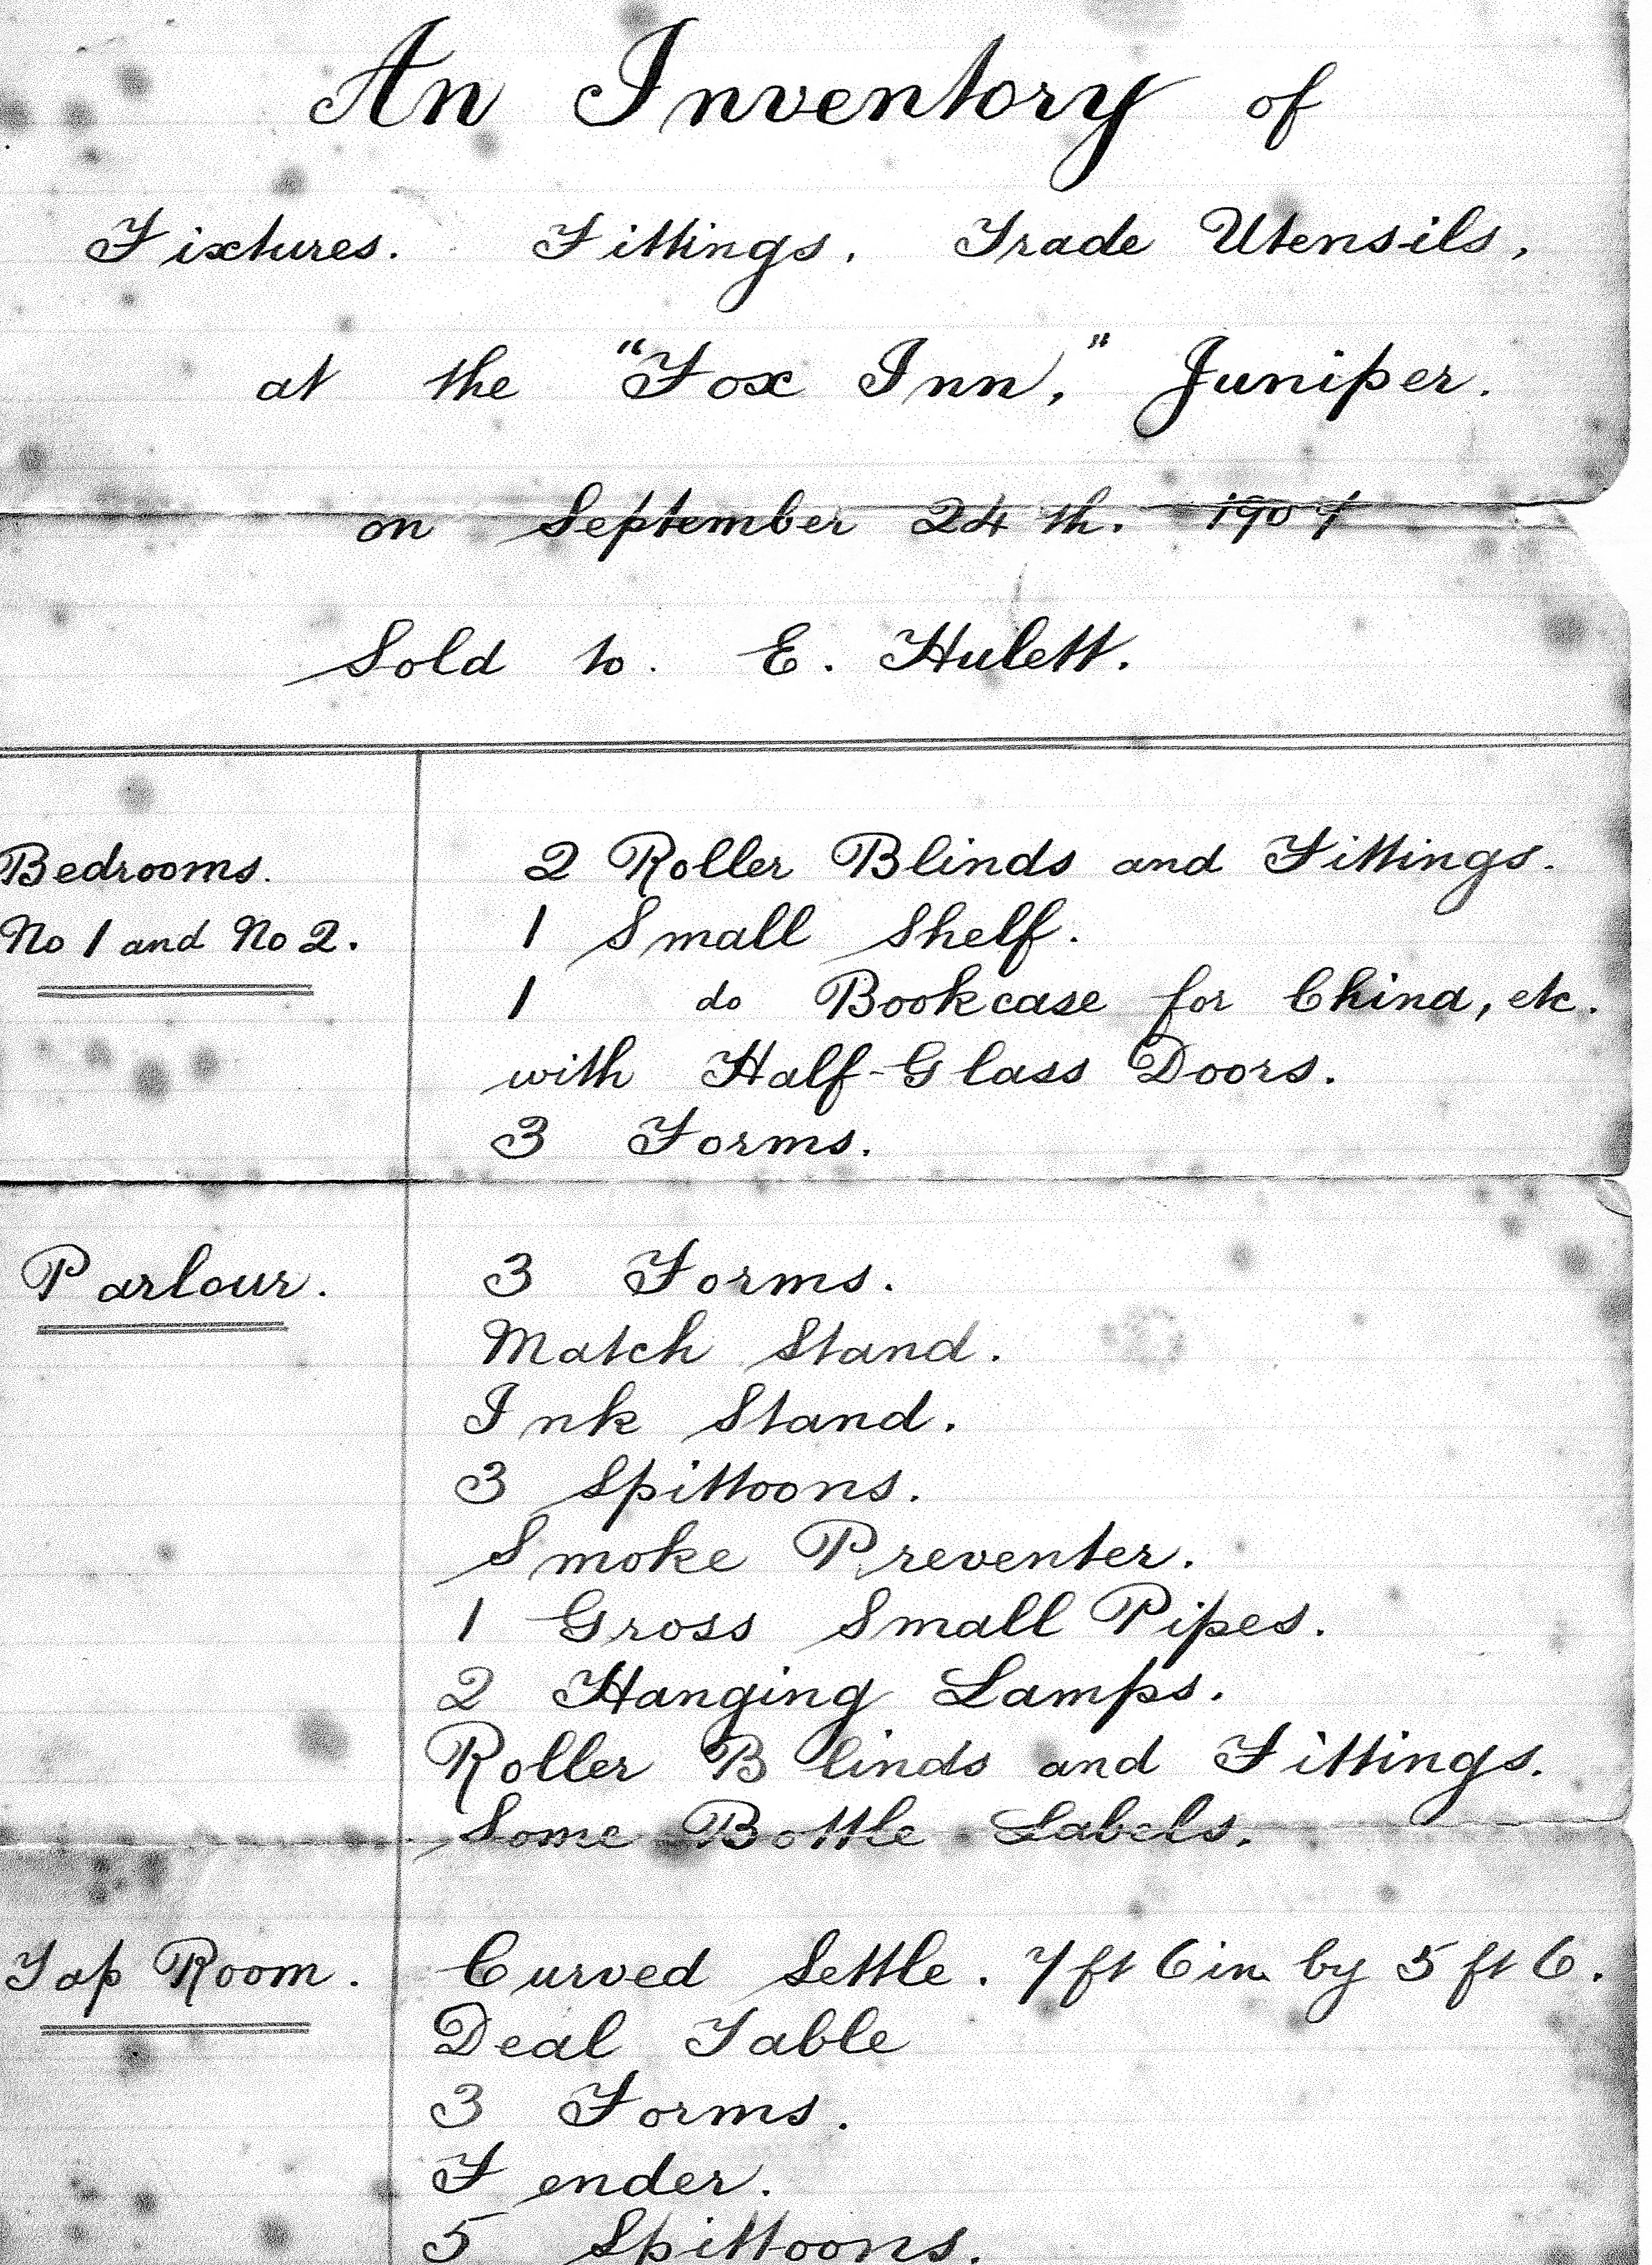 An Inventory of
Fixtures. Fittings. Trade Utensils,
at the "Fox Inn," Juniper.
on September 24th. 1907
Sold to. E. Hulett.
Bedrooms.
No 1 and No 2.
2 Roller Blinds and Fittings.
1 Small Shelf.
1 do Bookcase for China, etc.
with Half-Glass Doors.
3 Forms.
Parlour.
3 Forms.
Match Stand.
Ink Stand.
3 Spittoons.
Smoke Preventer.
1 Gross Small Pipes.
2 Hanging Lamps.
Roller Blinds and Fittings.
Some Bottle Labels.
Tap Room.
Curved Settle. 7ft 6in by 5ft 6.
Deal Table
3 Forms.
Fender.
5 Spittoons.